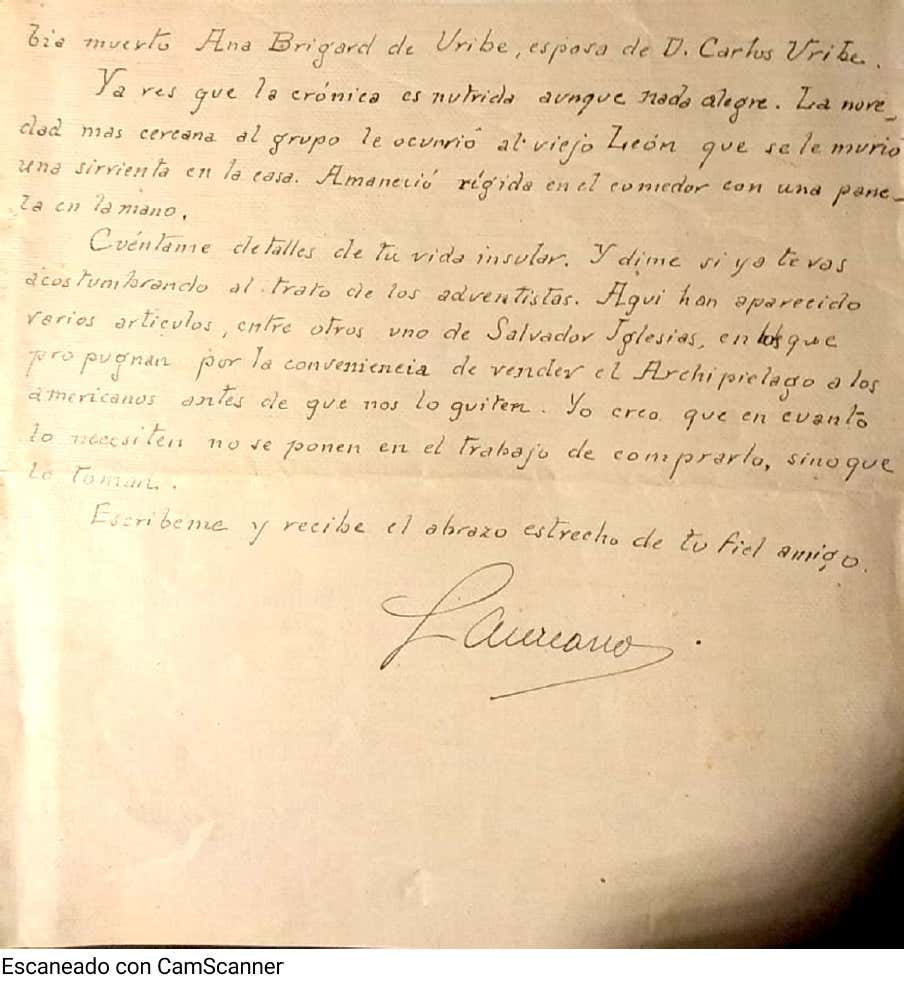 bia muerto Ana Brigard de Uribe, esposa de D. Carlos Uribe.
Ya ves que la crónica es nutrida aunque nada alegre. La nove_
dad mas cercana al grupo le ocurrió al viejo León que se le murió
una sirvienta en la casa. Amaneció rígida en el comedor con una pane_
la en la mano.
Cuéntame detalles de tu vida insular. Y dime si ya te vas
acostumbrando al trato de los adventistas. Aqui han aparecido
varios articulos, entre otros uno de Salvador Iglesias, en los que
propugnan por la conveniencia de vender el Archipielago a los
americanos antes de que nos lo quiten. Yo creo que en cuanto
lo necesiten no se ponen en el trabajo de comprarlo, sino que
lo toman.
Escribeme y recibe el abrazo estrecho de tu fiel amigo.
Laureano.
Escaneado con CamScanner